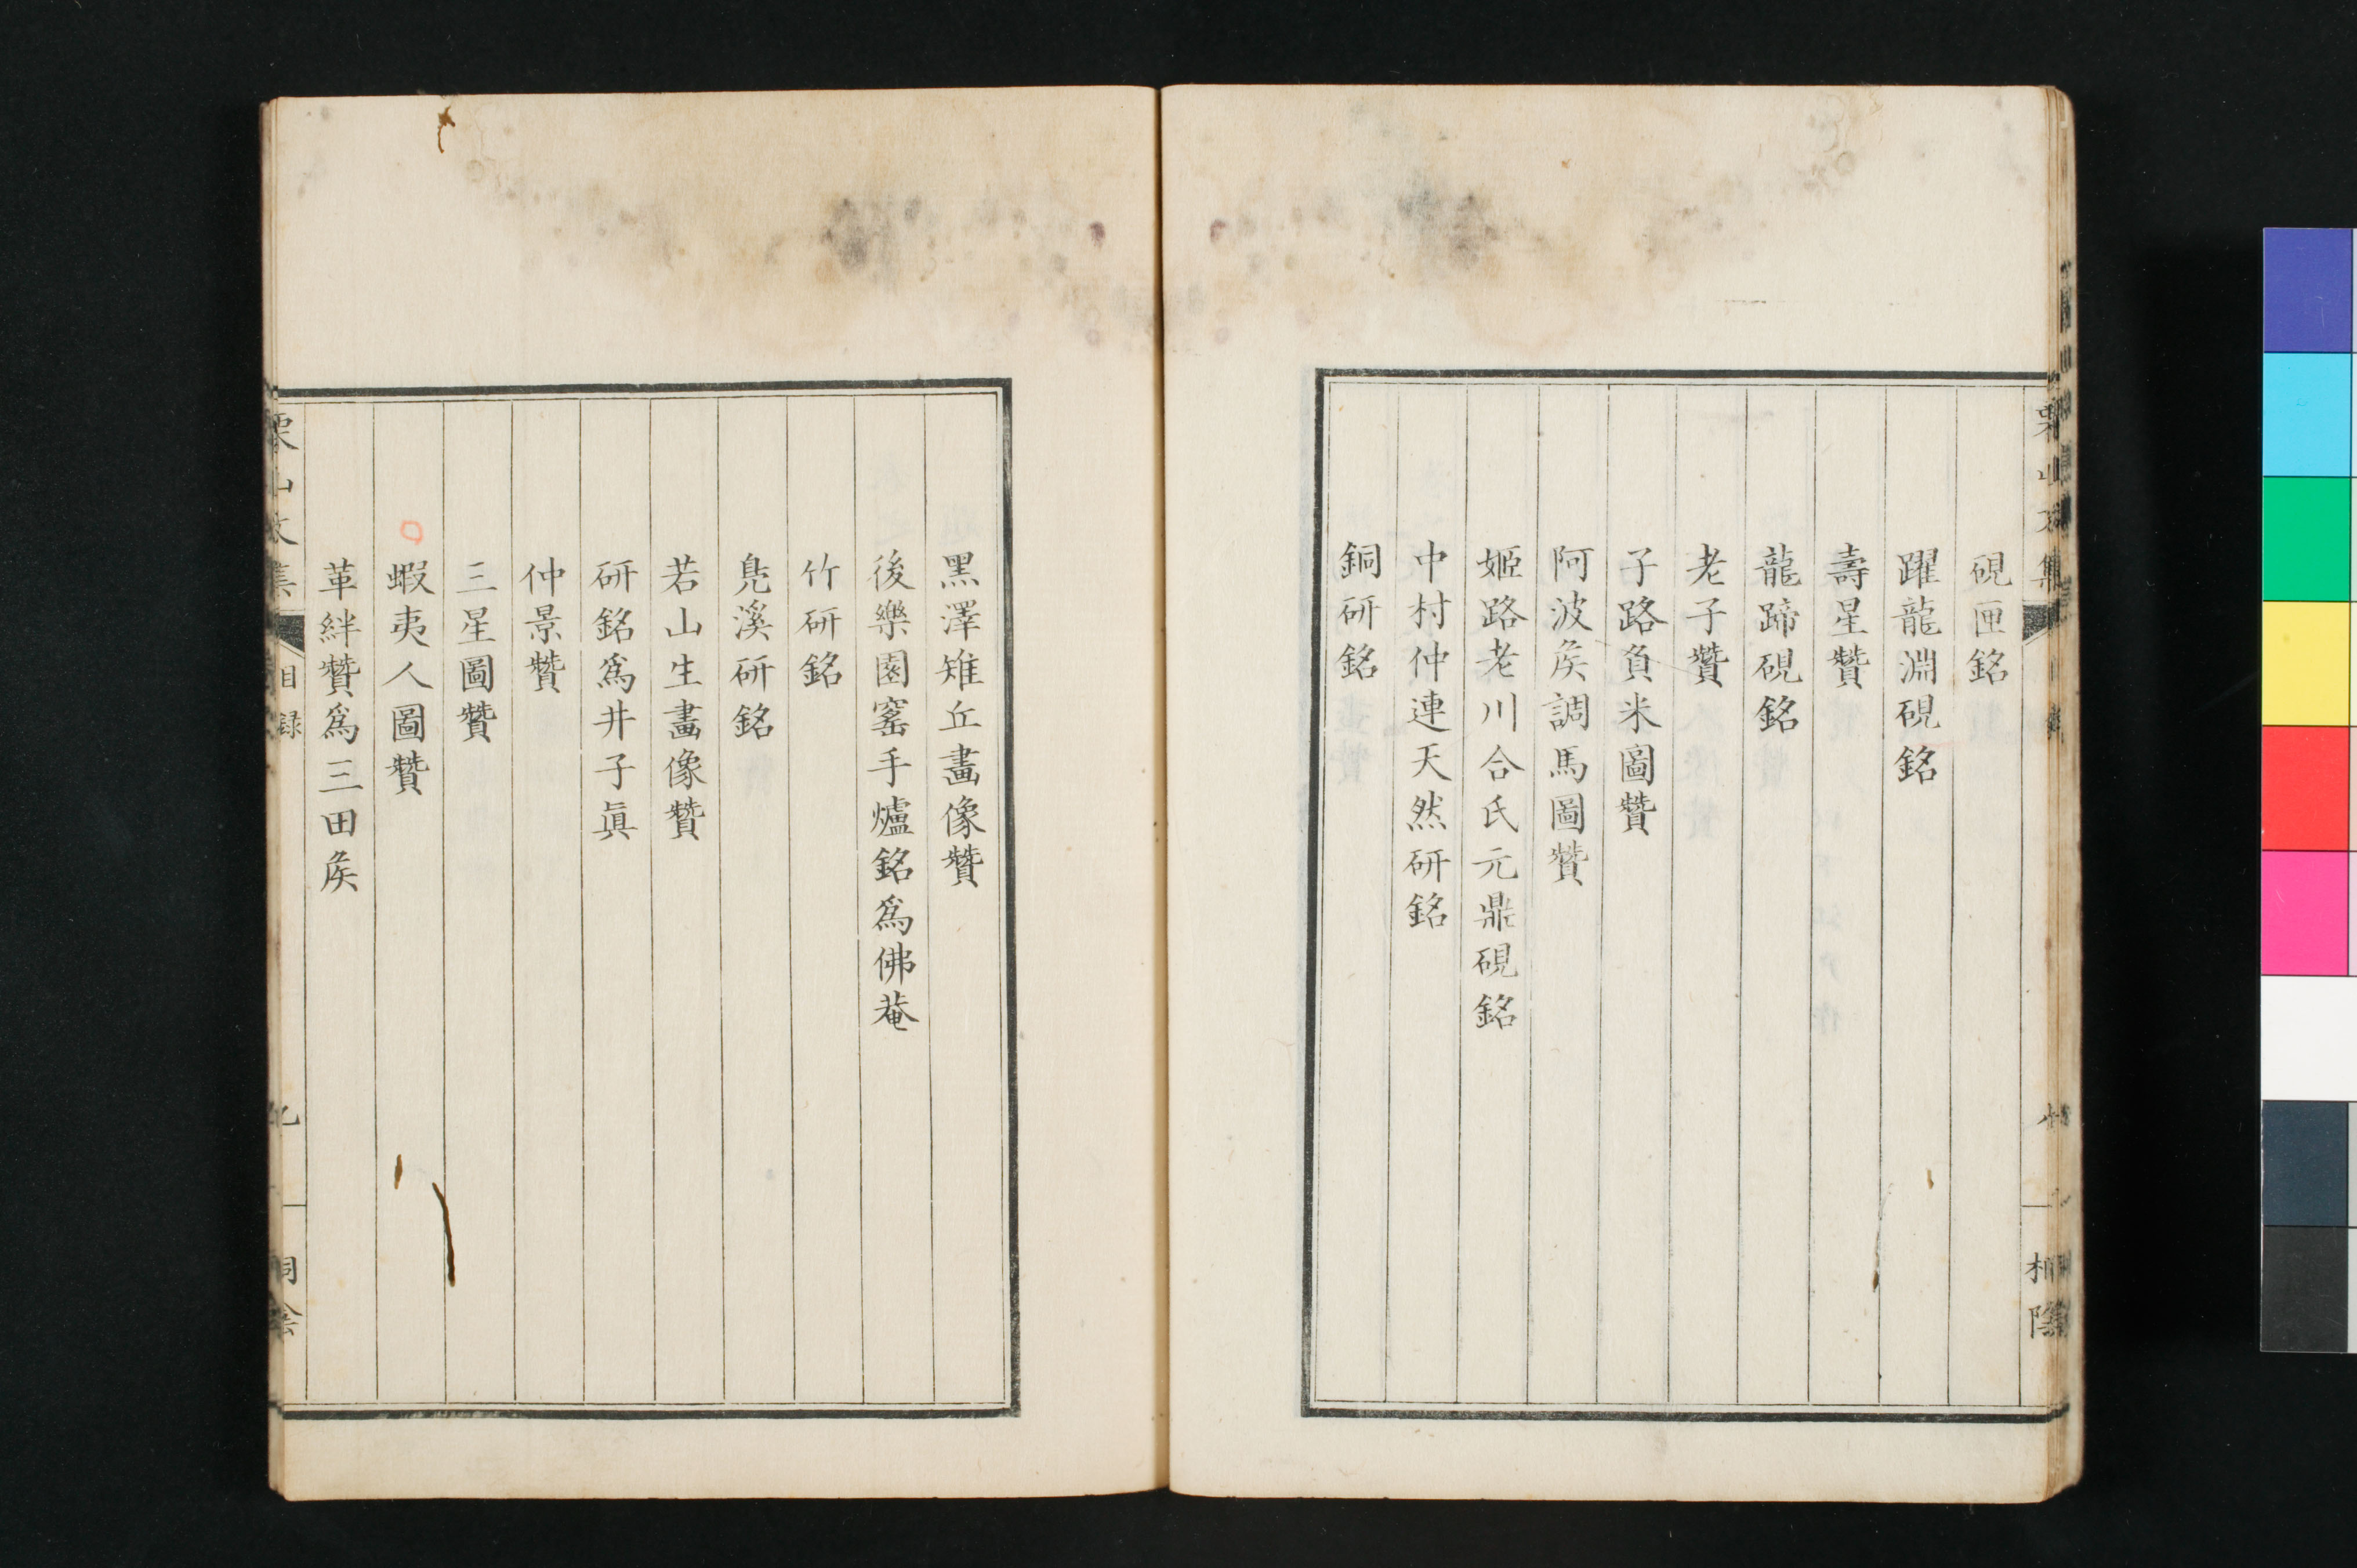 硯匣銘
躍龍淵硯銘
壽星贊
龍蹄硯銘
老子贊
子路負米圖贊
阿波矦調馬圖贊
姬路老川合氏元鼎硯銘
中村仲連天然研銘
銅研銘
黑澤雉丘畫像贊
後樂園窰手爐銘爲佛菴
竹研銘
溪研銘
若山生畫像贊
研銘爲井子眞
仲景贊
三星圖贊
蝦夷人圖贊
革絆贊爲三田矦
目録